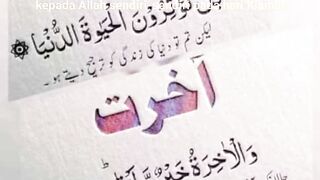 kepada Allah sendiri sendiri pada hari Kiamat
تُؤْثِرُوْنَ الْحَيٰوةَ الدُّنْيَا
لیکن تم تو دنیا کی زندگی کو ترجیح دیتے ہو۔
آخرت
وَالْاٰخِرَةُ خَيْرٌ